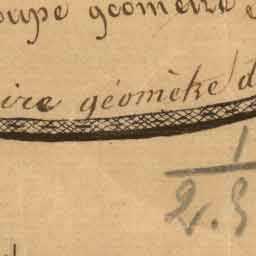 oupe géomètre
ire géomètre d
1
2.